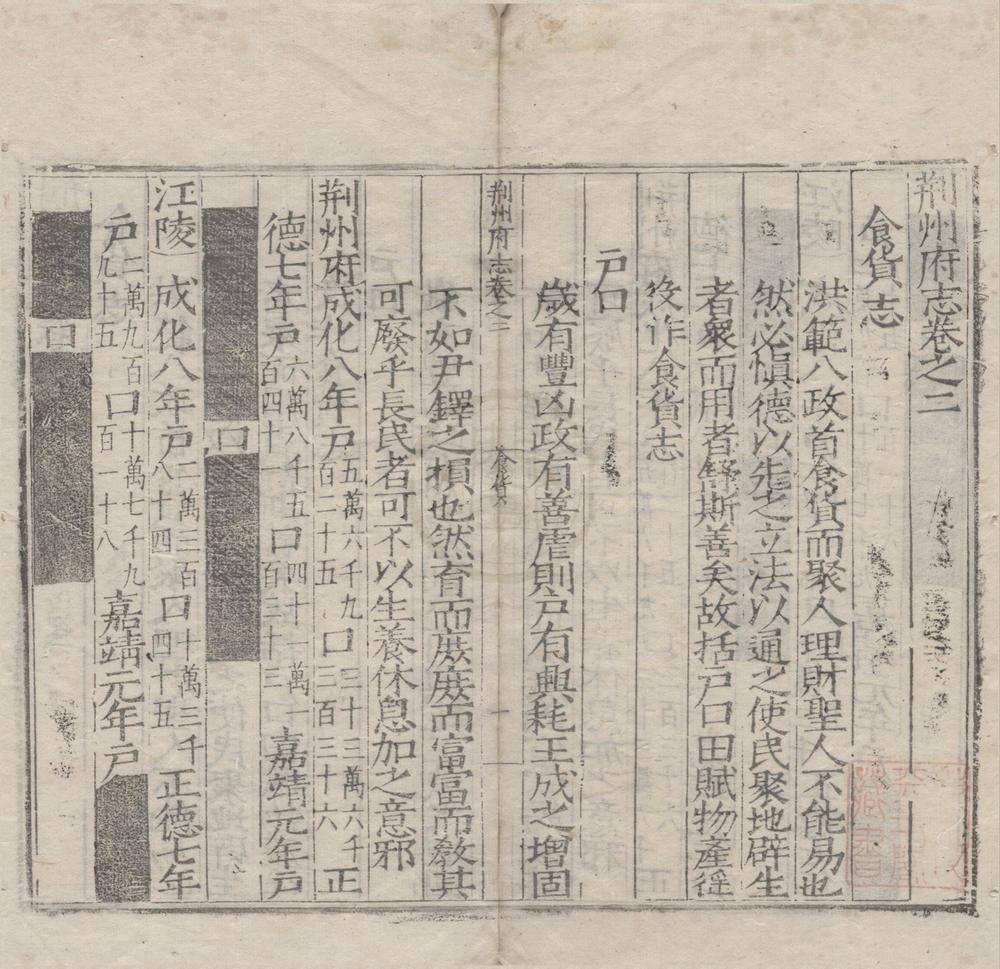 荆州府志卷之三
食貨志
洪範八政首食貨而聚人理財聖人不能易也
然必愼德以先之立法以通之使民聚地辟生
者衆而用者舒斯善矣故括戶口田賦物產徭
役作食貨志
戶口
歲有豐凶政有善虐則戶有興耗王成之增固
荆州府志卷之三 食貨 一
不如尹鐸之損也然育而庶庶而富富而敎其
可廢乎長民者可不以生養休息加之意邪
荆州府成化八年戶五萬六千九百二十五口三十三萬六千三百三十六正
德七年戶六萬八千五百四十一口四十一萬一百三十三嘉靖元年戶
口
江陵成化八年戶二萬三百八十四口十萬三千四十五正德七年
戶二萬九百九十五口十萬七千九百一十八嘉靖元年戶
口